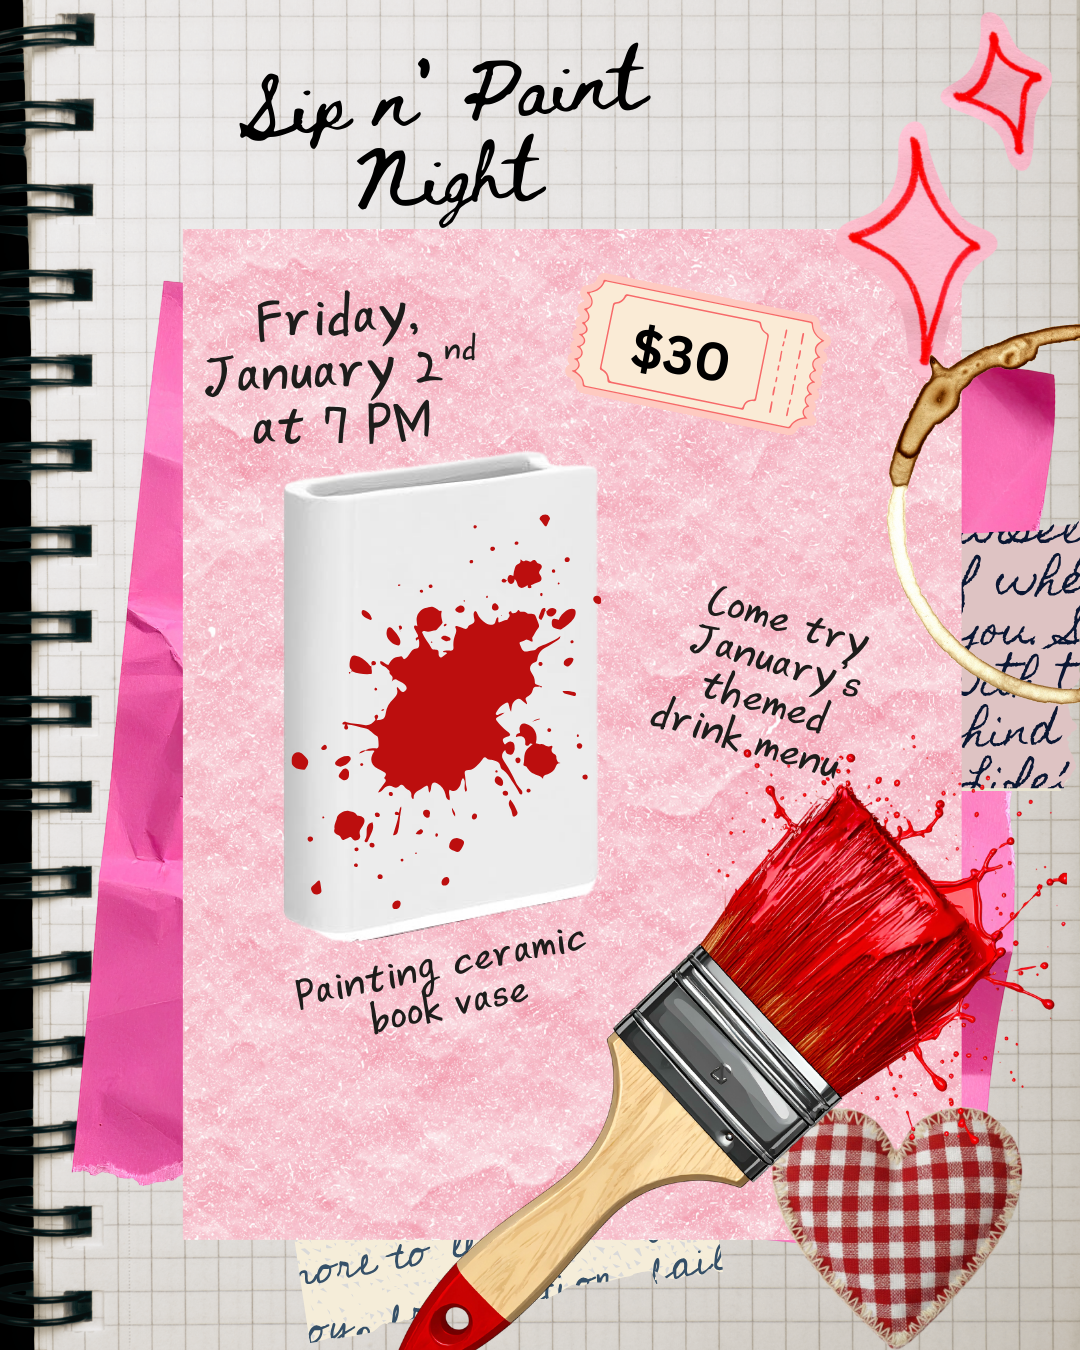 Sip n' Paint
Night
Friday,
January 2nd
at 7 PM
$30
Come try
January's
themed
drink menu
Painting ceramic
book vase
whe
you. S
hind
more to